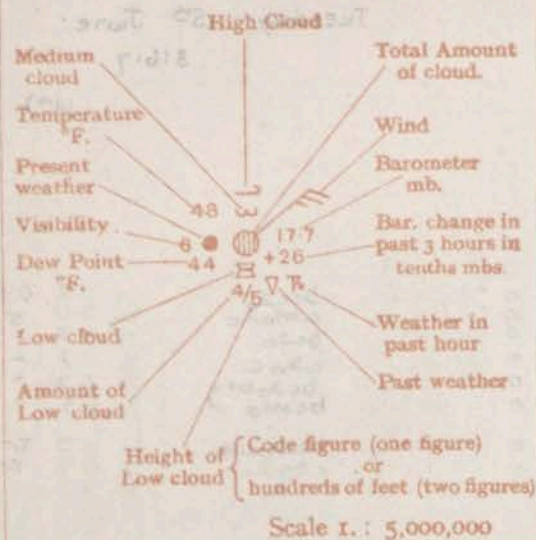 High Cloud
Medium
cloud
Total Amount
of cloud.
Temperature
°F.
Wind
Present
weather
Barometer
mb.
48
Visibility
6
17.7
Bar. change in
past 3 hours in
tenths mbs.
+26
Dew Point
°F.
44
4/5
Low cloud
Weather in
past hour
Amount of
Low cloud
Past weather
Height of
Low cloud
Code figure (one figure)
or
hundreds of feet (two figures)
Scale 1.: 5,000,000